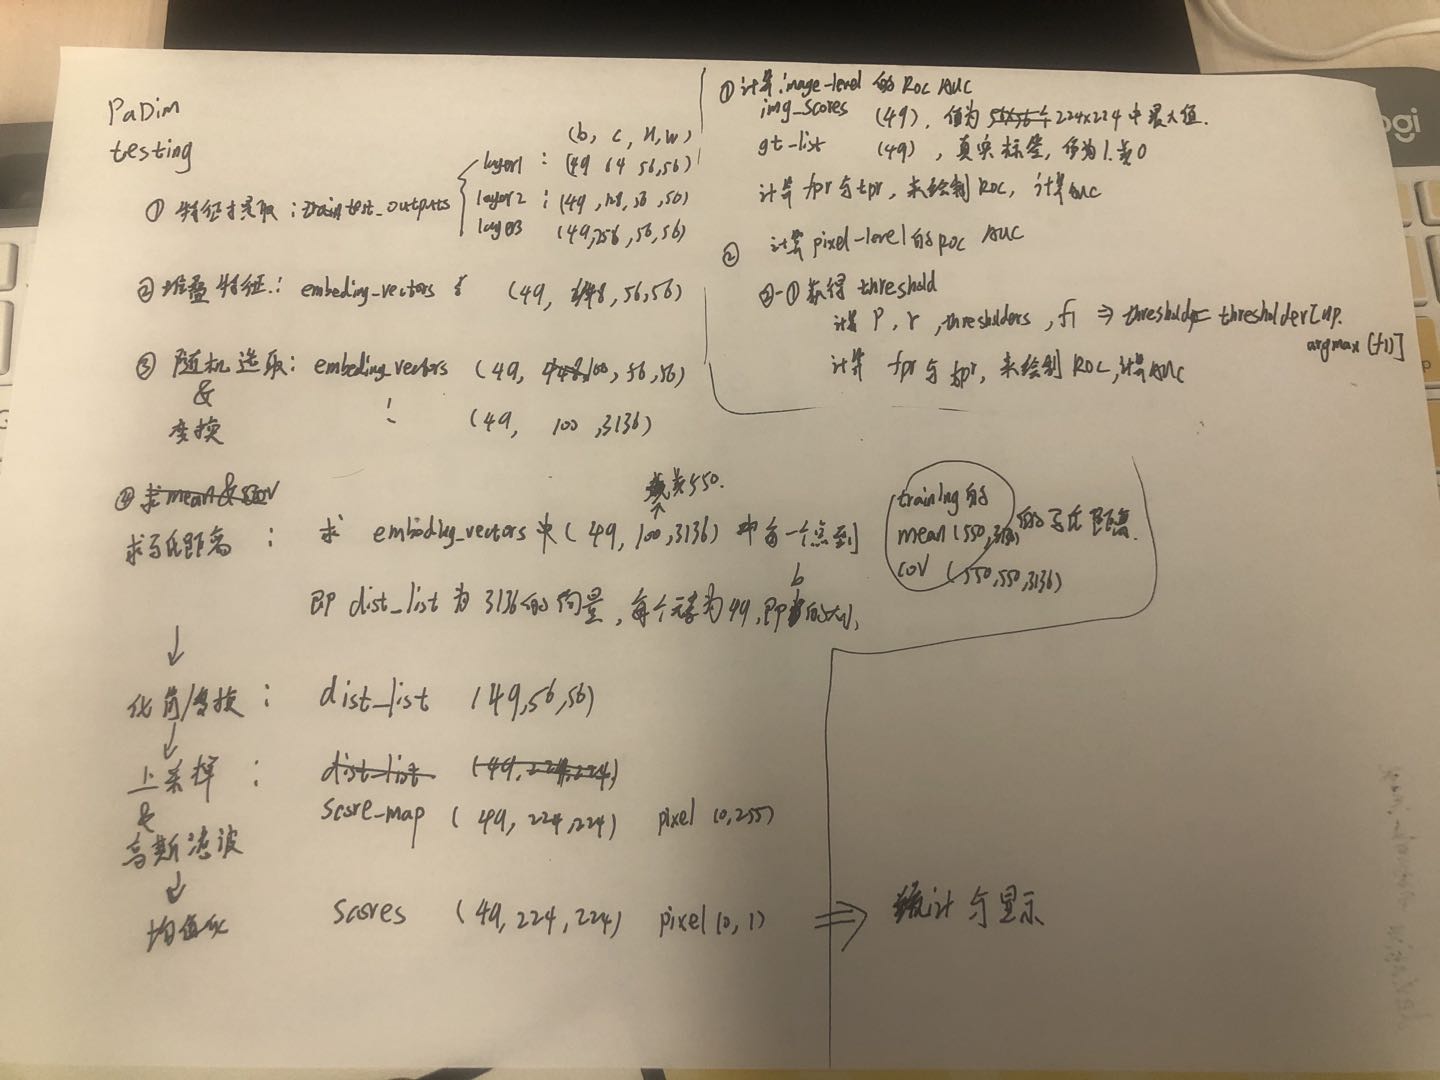 PaDim
testing
(b, c, H, W)
layer1 : (49 64 56,56)
① 特征提取 : test_outputs layer2 : (49,128,56,56)
layer3 (49,256,56,56)
② 堆叠特征 : embeding_vectors : (49, 448, 56,56)
③ 随机选取 : embeding_vectors (49, 100, 56,56)
&
变换 : (49, 100, 3136)
④ 求mean & cov
或关550.
求马氏距离 : 求 embeding_vectors中(49, 100, 3136) 中每一个点到 training的
mean (550, 3136) 的马氏距离.
cov (550,550,3136)
即 dist_list 为 3136的向量, 每个元素为49, 即b的大小
↓
化简/变换 : dist_list (49,56,56)
↓
上采样 : dist_list (49,224,224)
& score_map (49, 224,224) pixel (0,255)
高斯滤波
↓
均值化 scores (49, 224, 224) pixel (0, 1) ⇒ 统计与显示
① 计算image-level 的 ROC AUC
img_scores (49), 值为 224x224 中最大值.
gt_list (49), 真实标签, 值为1或0
计算 fpr与tpr, 来绘制ROC, 计算AUC
② 计算pixel-level的ROC AUC
②-① 获得 threshold
计算 P, r, thresholders, f1 ⇒ threshold = thresholder[np.
argmax (f1)]
计算 fpr与tpr, 来绘制ROC, 计算AUC
ogi